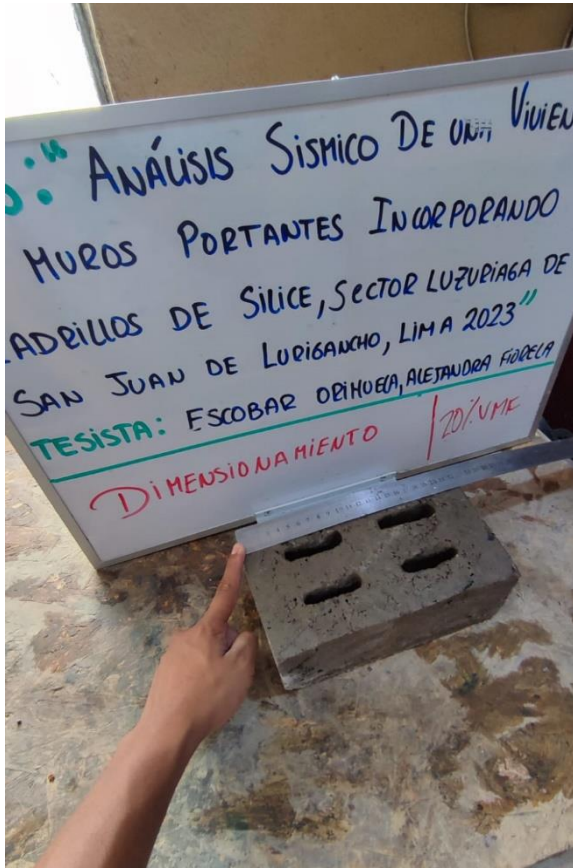 O:" ANÁLISIS SISMICO DE UNA VIVIEN
MUROS PORTANTES INCORPORANDO
LADRILLOS DE SILICE, SECTOR LUZURIAGA DE
SAN JUAN DE LURIGANCHO, LIMA 2023"
TESISTA: ESCOBAR ORIHUELA, ALEJANDRA FIORELA
DIMENSIONAMIENTO